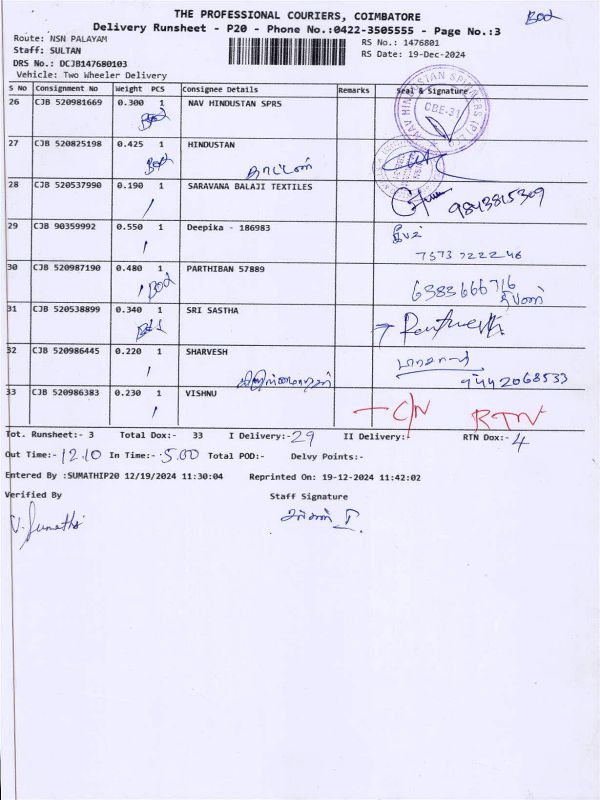 THE PROFESSIONAL COURIERS, COIMBATORE
Delivery Runsheet - P20 - Phone No.:0422-3505555 - Page No.:3
Route: NSN PALAYAM
RS No.: 1476801
Staff: SULTAN
RS Date: 19-Dec-2024
DRS No.: DCJB147680103
Vehicle: Two Wheeler Delivery
S No Consignment No Weight PCS Consignee Details Remarks Seal & Signature
26 CJB 520981669 0.300 1 NAV HINDUSTAN SPRS
CBE-31
27 CJB 520825198 0.425 1 HINDUSTAN
28 CJB 520537990 0.190 1 SARAVANA BALAJI TEXTILES
9843815309
29 CJB 90359992 0.550 1 Deepika - 186983
7573 222246
30 CJB 520987190 0.480 1 PARTHIBAN 57889
6383666716
31 CJB 520538899 0.340 1 SRI SASTHA
32 CJB 520986445 0.220 1 SHARVESH
9442068533
33 CJB 520986383 0.230 1 VISHNU
C/N RTN
Tot. Runsheet:- 3 Total Dox:- 33 I Delivery:- 29 II Delivery: RTN Dox:- 4
Out Time:- 12.10 In Time:- 5.00 Total POD:- Delvy Points:-
Entered By :SUMATHIP20 12/19/2024 11:30:04 Reprinted On: 19-12-2024 11:42:02
Verified By Staff Signature
V. Sumathi